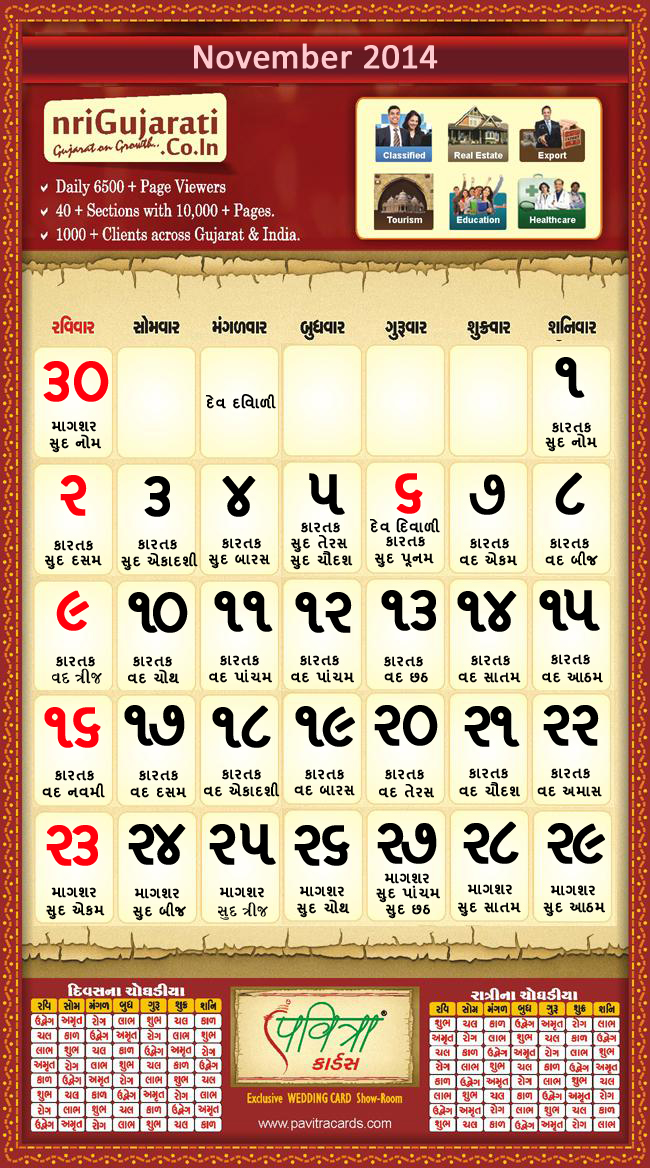 November 2014
nriGujarati
Gujarat on Growth..
.Co.In
Daily 6500 + Page Viewers
40 + Sections with 10,000 + Pages.
1000 + Clients across Gujarat & India.
Classified Real Estate Export
Tourism Education Healthcare
રવિવાર સોમવાર મંગળવાર બુધવાર ગુરૂવાર શુક્રવાર શનિવાર
૩૦ ૧
દેવ દિવાળી
માગશર કારતક
સુદ નોમ સુદ નોમ
૨ ૩ ૪ ૫ ૬ ૭ ૮
કારતક દેવ દિવાળી
કારતક કારતક કારતક સુદ તેરસ કારતક કારતક કારતક
સુદ દસમ સુદ એકાદશી સુદ બારસ સુદ ચૌદશ સુદ પૂનમ વદ એકમ વદ બીજ
૯ ૧૦ ૧૧ ૧૨ ૧૩ ૧૪ ૧૫
કારતક કારતક કારતક કારતક કારતક કારતક કારતક
વદ ત્રીજ વદ ચોથ વદ પાંચમ વદ પાંચમ વદ છઠ વદ સાતમ વદ આઠમ
૧૬ ૧૭ ૧૮ ૧૯ ૨૦ ૨૧ ૨૨
કારતક કારતક કારતક કારતક કારતક કારતક કારતક
વદ નવમી વદ દસમ વદ એકાદશી વદ બારસ વદ તેરસ વદ ચૌદશ વદ અમાસ
૨૩ ૨૪ ૨૫ ૨૬ ૨૭ ૨૮ ૨૯
માગશર
માગશર માગશર માગશર માગશર સુદ પાંચમ માગશર માગશર
સુદ એકમ સુદ બીજ સુદ ત્રીજ સુદ ચોથ સુદ છઠ સુદ સાતમ સુદ આઠમ
દિવસના ચોઘડીયા
રવિ સોમ મંગળ બુધ ગુરૂ શુક્ર શનિ
ઉદ્વેગ અમૃત રોગ લાભ શુભ ચલ કાળ
ચલ કાળ ઉદ્વેગ અમૃત રોગ લાભ શુભ
લાભ શુભ ચલ કાળ ઉદ્વેગ અમૃત રોગ
અમૃત રોગ લાભ શુભ ચલ કાળ ઉદ્વેગ
કાળ ઉદ્વેગ અમૃત રોગ લાભ શુભ ચલ
શુભ ચલ કાળ ઉદ્વેગ અમૃત રોગ લાભ
રોગ લાભ શુભ ચલ કાળ ઉદ્વેગ અમૃત
ઉદ્વેગ અમૃત રોગ લાભ શુભ ચલ કાળ
પવિત્રા®
કાર્ડસ
Exclusive WEDDING CARD Show-Room
www.pavitracards.com
રાત્રીના ચોઘડીયા
રવિ સોમ મંગળ બુધ ગુરૂ શુક્ર શનિ
શુભ ચલ કાળ ઉદ્વેગ અમૃત રોગ લાભ
અમૃત રોગ લાભ શુભ ચલ કાળ ઉદ્વેગ
ચલ કાળ ઉદ્વેગ અમૃત રોગ લાભ શુભ
રોગ લાભ શુભ ચલ કાળ ઉદ્વેગ અમૃત
કાળ ઉદ્વેગ અમૃત રોગ લાભ શુભ ચલ
લાભ શુભ ચલ કાળ ઉદ્વેગ અમૃત રોગ
ઉદ્વેગ અમૃત રોગ લાભ શુભ ચલ કાળ
શુભ ચલ કાળ ઉદ્વેગ અમૃત રોગ લાભ